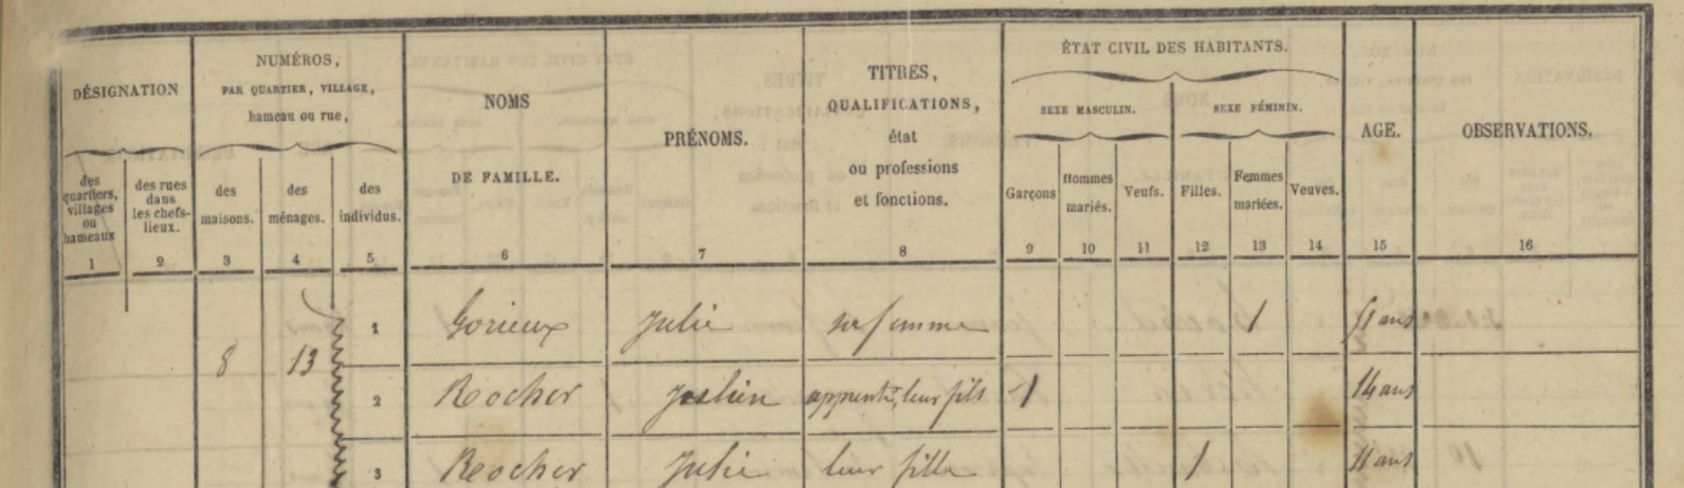 DÉSIGNATION
des quartiers, villages ou hameaux
des rues dans les chefs-lieux.
NUMÉROS,
PAR QUARTIER, VILLAGE,
hameau ou rue,
des maisons.
des ménages.
des individus.
NOMS
DE FAMILLE.
PRÉNOMS.
TITRES,
QUALIFICATIONS,
état
ou professions
et fonctions.
ÉTAT CIVIL DES HABITANTS.
SEXE MASCULIN.
SEXE FÉMININ.
Garçons
Hommes mariés.
Veufs.
Filles.
Femmes mariées.
Veuves.
AGE.
OBSERVATIONS.
1 2 3 4 5 6 7 8 9 10 11 12 13 14 15 16
1 Gorieux Julie sa femme 1 51 ans
8 13
2 Rocher apprenti, leur fils 1 14 ans
3 Rocher Julie leur fille 1 11 ans